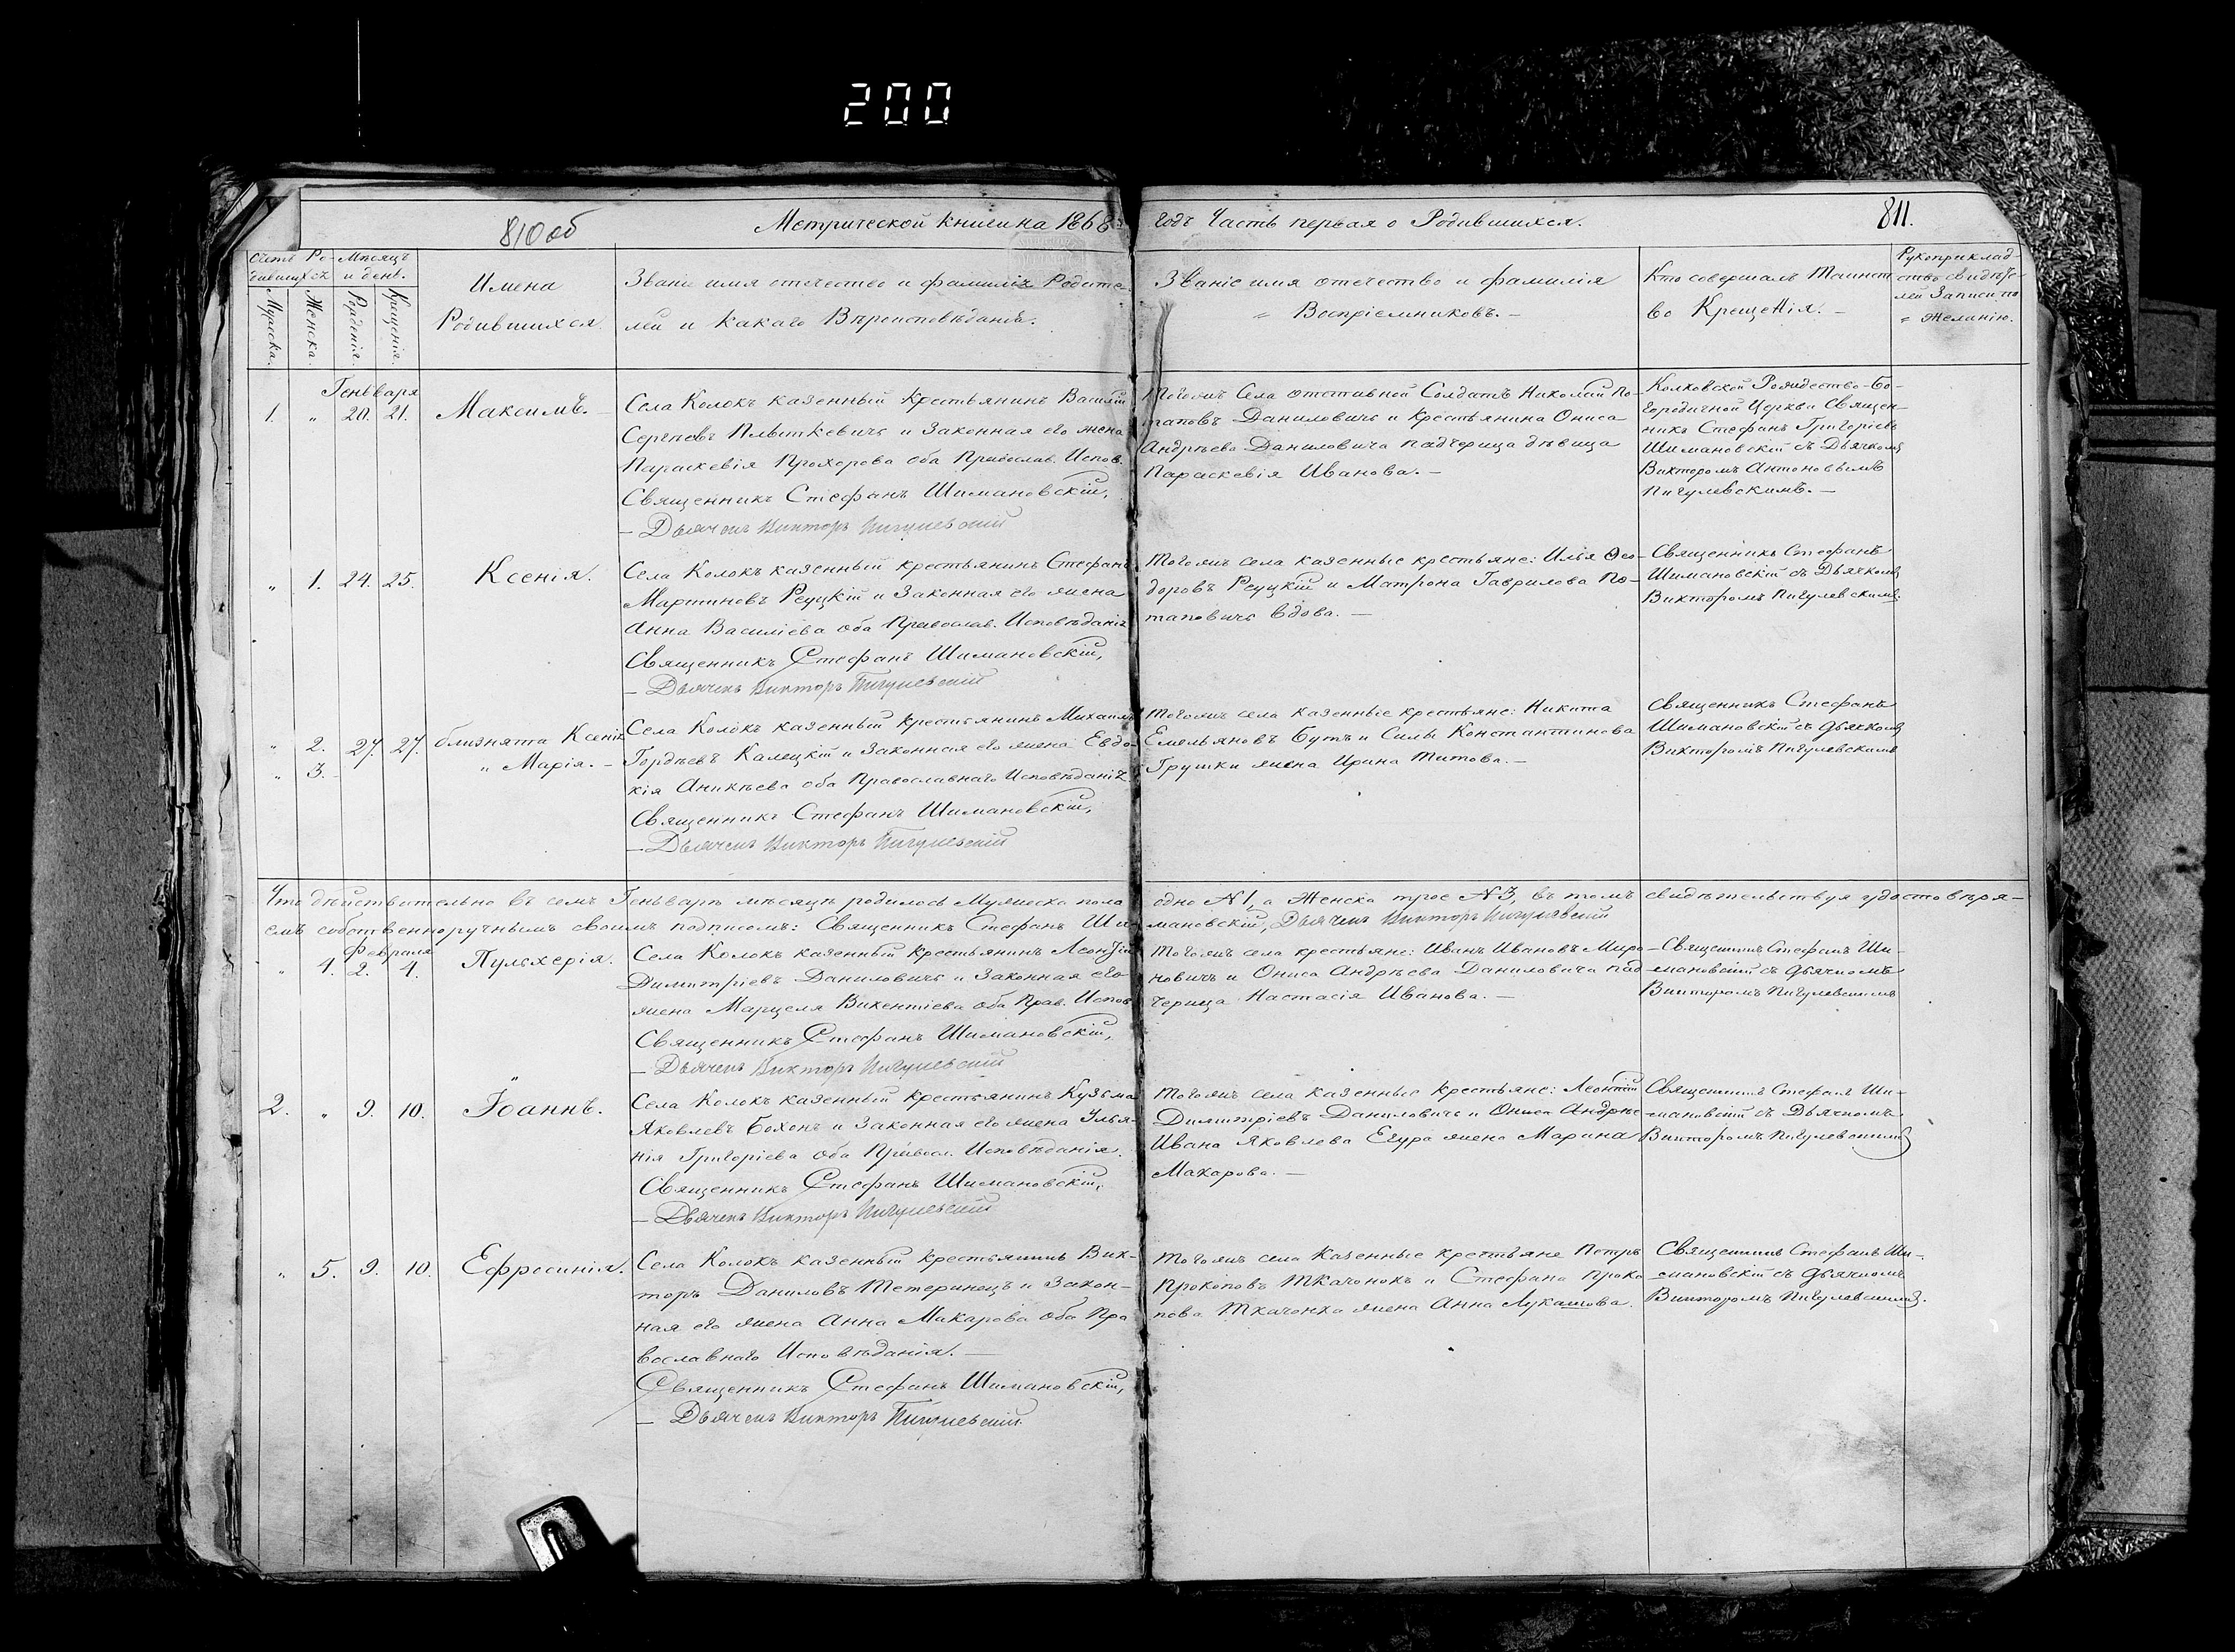 200
810 об
Метрической книги на 1868й
годъ Часть первая о Родившихся.
811.
Счетъ Ро-
дившихся
Мѣсяцъ
и день.
Мужеска.
Женска.
Рожденія.
Крещенія.
Имена
Родившихся.
Званіе имя отчество и фамилія Родите-
лей и какаго Вѣроисповѣданія.
Званіе имя отечество и фамилія
Воспріемниковъ. —
Кто совершалъ Таинст
во Крещенія. —
Рукоприклад-
ство свидѣте-
лей Записи, по
желанію.
Генваря
1. " 20. 21. Максимъ. —
Села Колокъ казенный крестьянинъ Василій
Сергѣевъ Плыткевичъ и Законная его жена
Параскевія Прохорова оба Православ. Испов.
Священникъ Стефанъ Шимановскій,
— Дьячекъ Викторъ Пигулевскій
Тогожъ Села отставной Солдатъ Николай По-
таповъ Даниловичъ и крестьянина Ониса
Андрѣева Даниловича падчерица дѣвица
Параскевія Иванова. —
Колковской Рождество-Бо-
городичной Церкви Священ-
никъ Стефанъ Григоріевъ
Шимановскій съ Дьячкомъ
Викторомъ Антоновымъ
Пигулевскимъ. —
" 1. 24. 25. Ксенія.
Села Колокъ казенный крестьянинъ Стефанъ
Мартиновъ Реуцкій и Законная его жена
Анна Василіева оба Православ. Исповѣданія
Священникъ Стефанъ Шимановскій,
— Дьячекъ Викторъ Пигулевскій
Тогожъ села казенные крестьяне: Илья Ѳео-
доровъ Реуцкій и Матрона Гаврилова По-
таповичъ вдова. —
Священникъ Стефанъ
Шимановскій съ Дьячкомъ
Викторомъ Пигулевскимъ
" 2. 27. 27. близнята Ксенія
" 3. - " Марія. —
Села Колокъ казенный крестьянинъ Михаилъ
Гордѣевъ Калецкій и Законная его жена Евдо-
кія Аникѣева оба Православнаго Исповѣданія
Священникъ Стефанъ Шимановскій,
— Дьячекъ Викторъ Пигулевскій
Тогожъ села казенные крестьяне: Никита
Емельяновъ Бутъ и Силы Константинова
Грушки жена Ирина Титова. —
Священникъ Стефанъ
Шимановскій съ дьячкомъ
Викторомъ Пигулевскимъ
Что дѣйствительно въ семъ Генварѣ мѣсяцѣ родилось Мужеска пола
одно №1, а Женска трое №3, въ томъ свидѣтельствуя удостовѣря-
емъ собственноручнымъ своимъ подписомъ: Священникъ Стефанъ Ши
мановскій, Дьячекъ Викторъ Пигулевскій
Февраля
" 4. 2. 4. Пульхерія.
Села Колокъ казенный крестьянинъ Леонтій
Димитріевъ Даниловичъ и Законная его
жена Марцеля Викентіева оба Прав. Испов
Священникъ Стефанъ Шимановскій,
— Дьячекъ Викторъ Пигулевскій
Тогожъ села крестьяне: Иванъ Ивановъ Миро
новичъ и Ониса Андрѣева Даниловича пад
черица Настасія Иванова. —
Священникъ Стефанъ Ши-
мановскій съ дьячкомъ
Викторомъ Пигулевскимъ
2. " 9. 10. Іоаннъ.
Села Колокъ казенный крестьянинъ Кузьма
Яковлевъ Бохонъ и Законная его жена Улья-
нія Григоріева оба Правосл. Исповѣданія.
Священникъ Стефанъ Шимановскій,
— Дьячекъ Викторъ Пигулевскій
Тогожъ села казенные крестьяне: Леонтій
Димитріевъ Даниловичъ и Ониса Андрѣе
Ивана Яковлева Егура жена Марина
Макарова. —
Священникъ Стефанъ Ши-
мановскій съ Дьячкомъ
Викторомъ Пигулевскимъ
" 5. 9. 10. Ефросинія.
Села Колокъ казенный крестьянинъ Вик-
торъ Даниловъ Тетеринецъ и Закон-
ная его жена Анна Макарова оба Пра
вославнаго Исповѣданія. —
Священникъ Стефанъ Шимановскій,
— Дьячекъ Викторъ Пигулевскій
Тогожъ села казенные крестьяне Петръ
Прокоповъ Ткачонокъ и Стефана Проко
пова Ткачонка жена Анна Лукашова.
Священникъ Стефанъ Ши-
мановскій съ дьячкомъ
Викторомъ Пигулевскимъ.